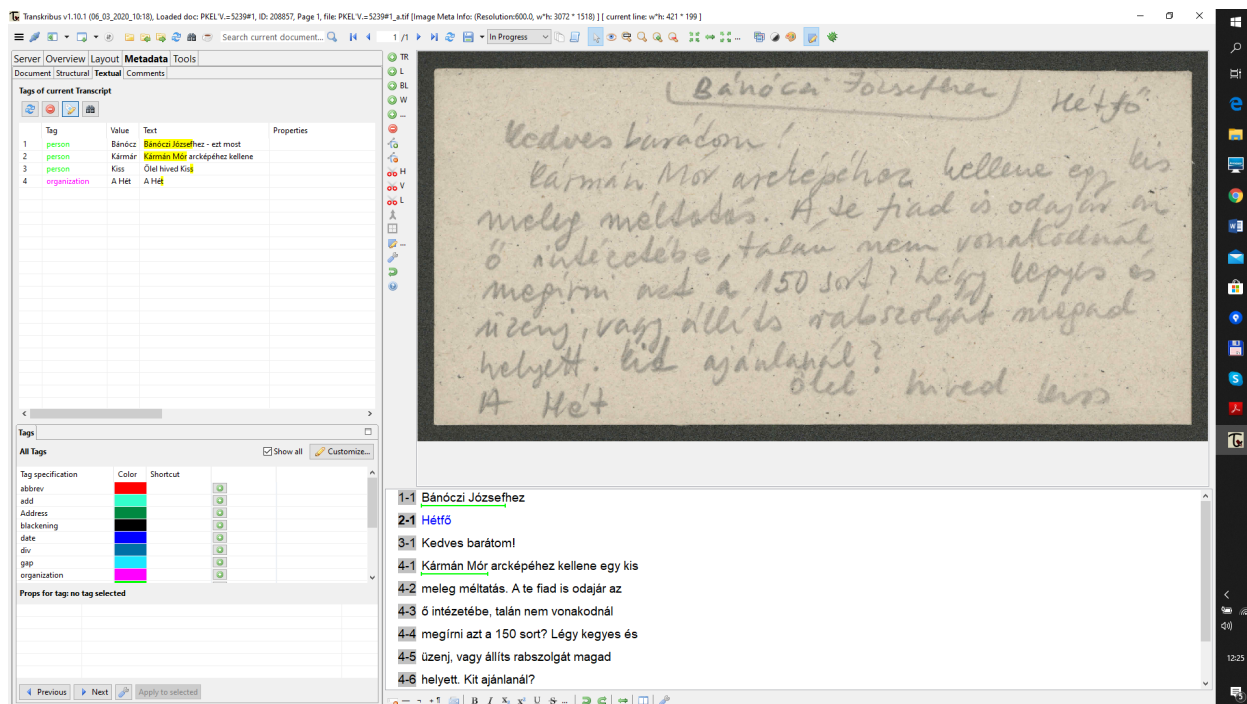 Transkribus v1.10.1 (06_03_2020_10:18), Loaded doc: PKEL'V.=5239#1, ID: 208857, Page 1, file: PKEL'V.=5239#1_a.tif [Image Meta Info: (Resolution:600.0, w*h: 3072 * 1518) ] [ current line: w*h: 421 * 199 ]
Search current document... 1 /1 In Progress
Server Overview Layout Metadata Tools
Document Structural Textual Comments
Tags of current Transcript
Tag Value Text Properties
1 person Bánócz Bánóczi Józsefhez - ezt most
2 person Kármár Kármán Mór arcképéhez kellene
3 person Kiss Ölel hived Kiss
4 organization A Hét A Hét
Tags
All Tags Show all Customize...
Tag specification Color Shortcut
abbrev
add
Address
blackening
date
div
gap
organization
Props for tag: no tag selected
Previous Next Apply to selected
TR
L
BL
W
...
H
V
L
Bánóczi Józsefhez
Hétfő
Kedves barátom!
Kármán Mór arcképéhez kellene egy kis
meleg méltatás. A te fiad is odajár az
ő intézetébe, talán nem vonakodnál
megírni azt a 150 sort? Légy kegyes és
üzenj, vagy állíts rabszolgát magad
helyett. Kit ajánlanál?
Ölel hived Kiss
A Hét
1-1 Bánóczi Józsefhez
2-1 Hétfő
3-1 Kedves barátom!
4-1 Kármán Mór arcképéhez kellene egy kis
4-2 meleg méltatás. A te fiad is odajár az
4-3 ő intézetébe, talán nem vonakodnál
4-4 megírni azt a 150 sort? Légy kegyes és
4-5 üzenj, vagy állíts rabszolgát magad
4-6 helyett. Kit ajánlanál?
B I X₁ X² U S ...
12:25